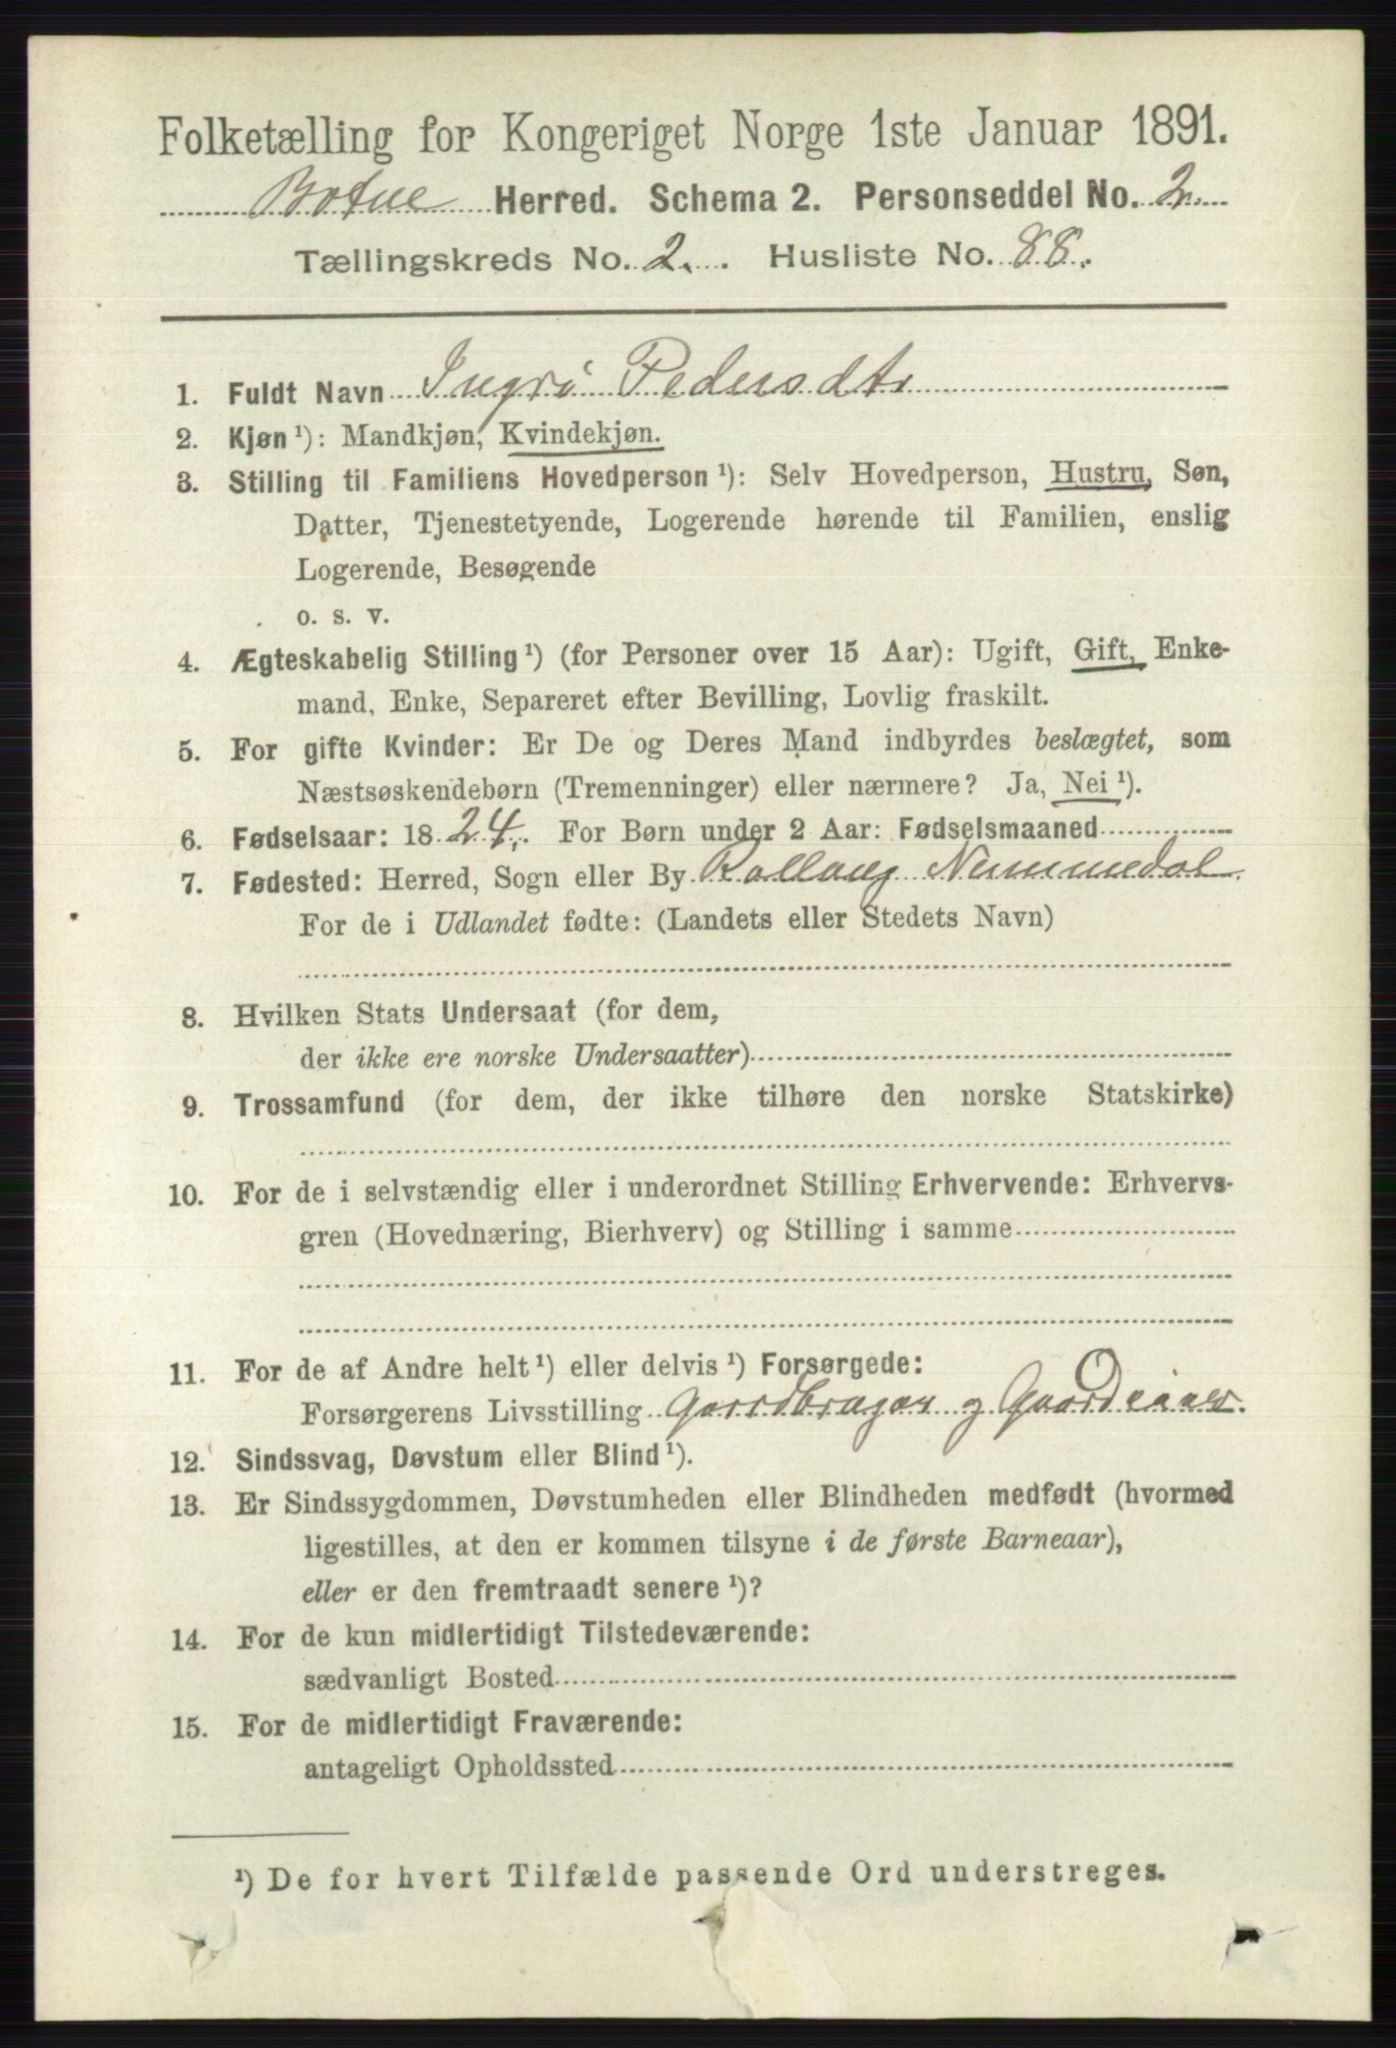 Folketælling for Kongeriget Norge 1ste Januar 1891.
Botne Herred. Schema 2. Personseddel No. 2.
Tællingskreds No. 2. Husliste No. 88.
1. Fuldt Navn Ingrø Pedersdtr
2. Kjøn ¹): Mandkjøn, Kvindekjøn.
3. Stilling til Familiens Hovedperson ¹): Selv Hovedperson, Hustru, Søn,
Datter, Tjenestetyende, Logerende hørende til Familien, enslig
Logerende, Besøgende
o. s. v.
4. Ægteskabelig Stilling ¹) (for Personer over 15 Aar): Ugift, Gift, Enke-
mand, Enke, Separeret efter Bevilling, Lovlig fraskilt.
5. For gifte Kvinder: Er De og Deres Mand indbyrdes beslægtet, som
Næstsøskendebørn (Tremenninger) eller nærmere? Ja, Nei ¹).
6. Fødselsaar: 1824. For Børn under 2 Aar: Fødselsmaaned
7. Fødested: Herred, Sogn eller By Rollaug Nummedal
For de i Udlandet fødte: (Landets eller Stedets Navn)
8. Hvilken Stats Undersaat (for dem,
der ikke ere norske Undersaatter)
9. Trossamfund (for dem, der ikke tilhøre den norske Statskirke)
10. For de i selvstændig eller i underordnet Stilling Erhvervende: Erhvervs-
gren (Hovednæring, Bierhverv) og Stilling i samme
11. For de af Andre helt ¹) eller delvis ¹) Forsørgede:
Forsørgerens Livsstilling Gaardbruger og Gaardeier
12. Sindssvag, Døvstum eller Blind ¹).
13. Er Sindssygdommen, Døvstumheden eller Blindheden medfødt (hvormed
ligestilles, at den er kommen tilsyne i de første Barneaar),
eller er den fremtraadt senere ¹)?
14. For de kun midlertidigt Tilstedeværende:
sædvanligt Bosted
15. For de midlertidigt Fraværende:
antageligt Opholdssted
¹) De for hvert Tilfælde passende Ord understreges.